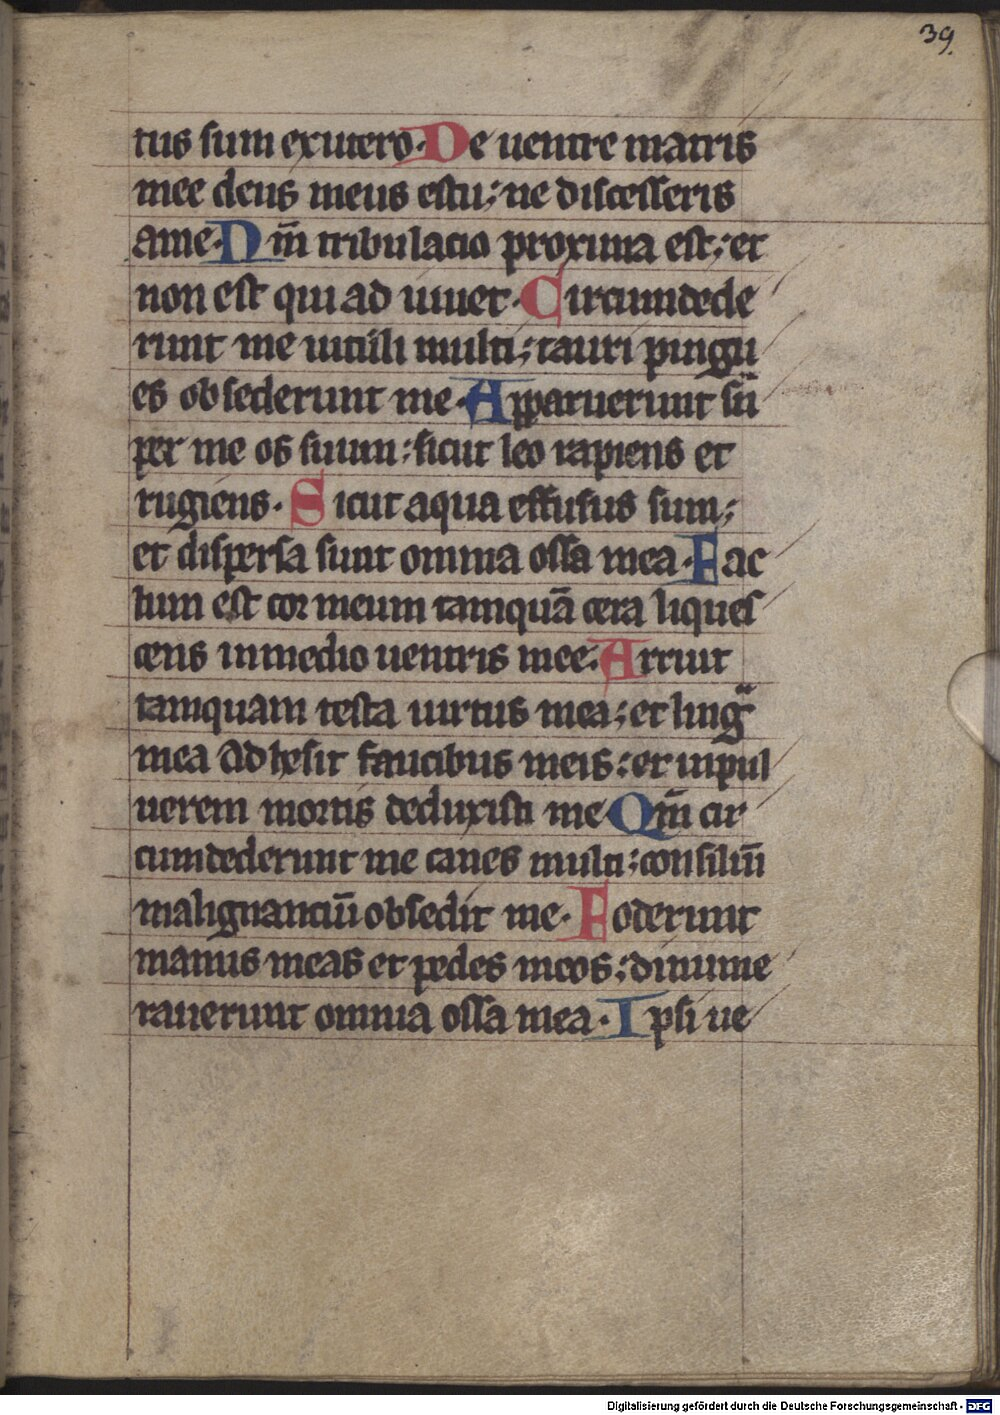 39.
tus sum exutero. De uentre matris
mee deus meus estu; ne discesseris
ame. Qm̄ tribulacio proxima est; et
non est qui ad iuuet. Circumdede
runt me uituli multi; tauri pingu
es obsederunt me. Apparuerunt sū
per me os suum; sicut leo rapiens et
rugiens. Sicut aqua effusus sum;
et dispersa sunt omnia ossa mea. Fac
tum est cor meum tamquā cera liques
cens inmedio uentris mee. Arruit
tamquam testa uirtus mea; et lingᵃ
mea adhesit faucibus meis; et inpul
uerem mortis deduxisti me Qm̄ cir
cumdederunt me canes multi; consiliū
malignanciū obsedit me. Foderunt
manus meas et pedes meos; dinume
rauerunt omnia ossa mea. Ipsi ue
Digitalisierung gefördert durch die Deutsche Forschungsgemeinschaft - DFG